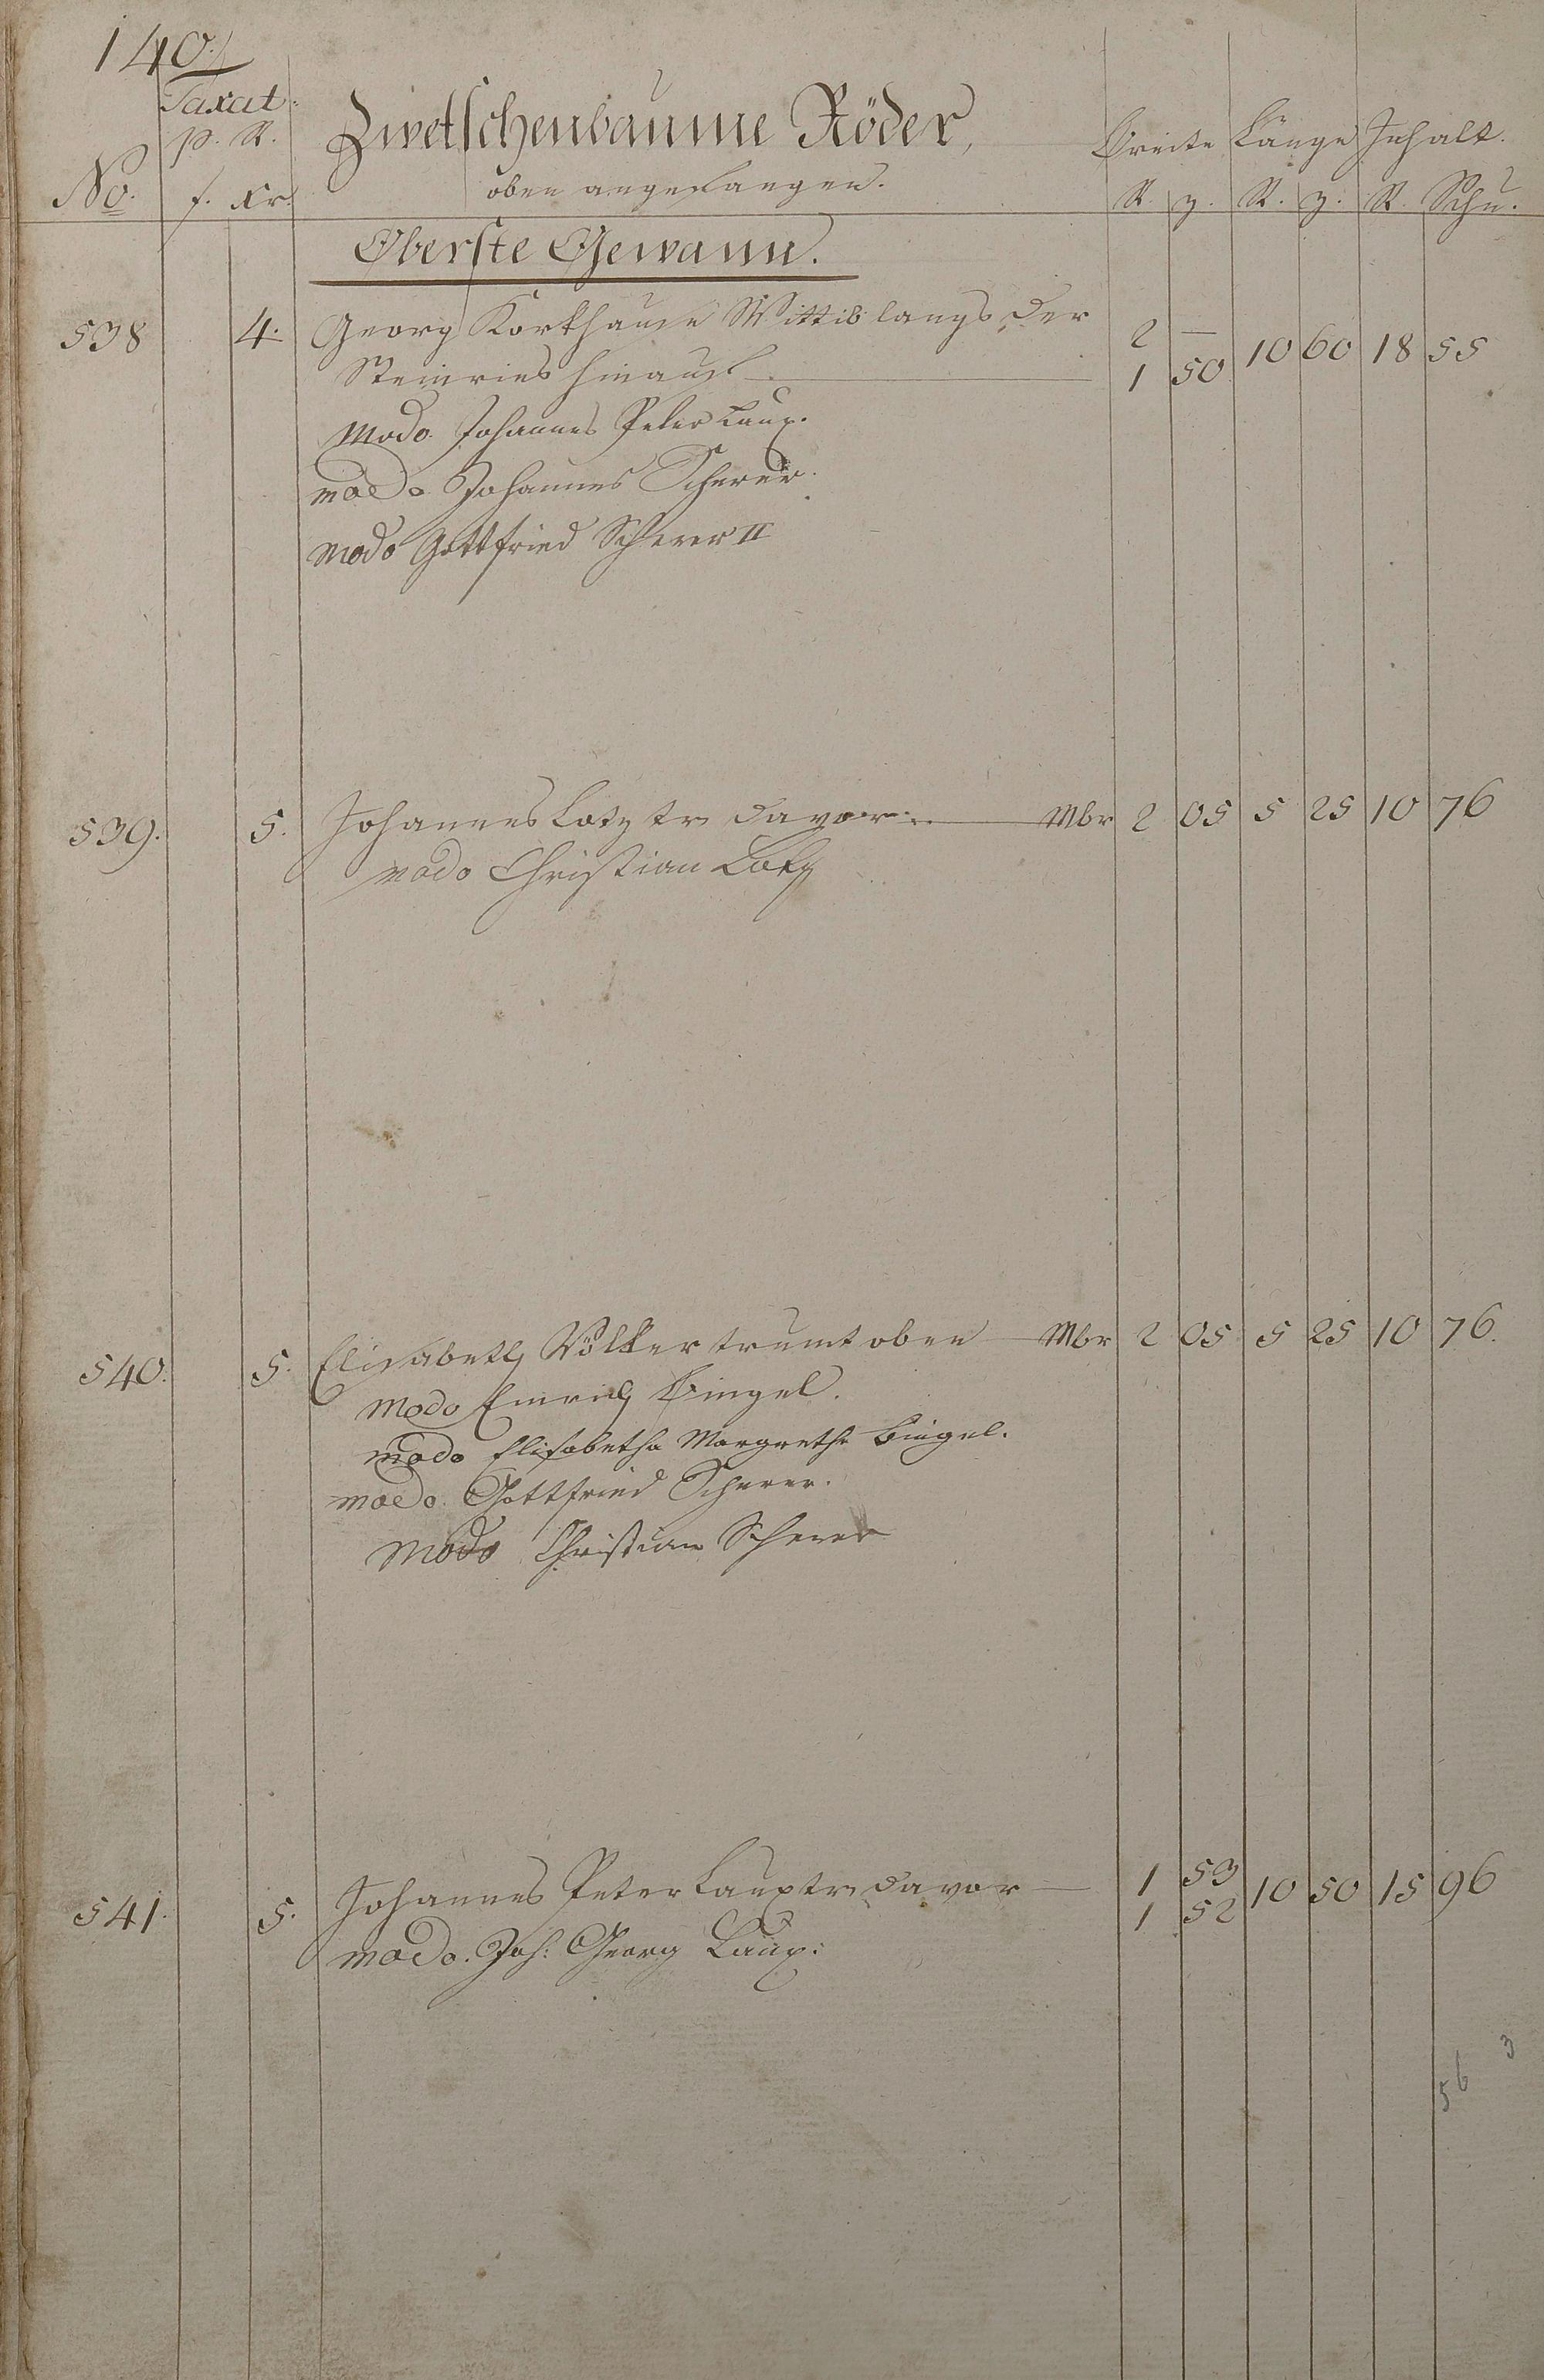 140.
Taxat:
p. R.
No. f. Xr.
Zwetschenbäume Röder,
oben angefangen.
Breite Länge Inhalt.
R. z. R. z. R. Schu.
Oberste Gewann.
538 4. Georg Korkhaus Wittib langs der 2 —
Steinries hinauf 1 50 10 60 18 55
modo Johannes Peter Laux.
modo Johannes Scherer.
modo Gottfried Scherer II
539. 5. Johannes Lotz tr. davor Mbr 2 05 5 25 10 76
modo Christian Lotz
540. 5. Elisabeth Völker trumt oben Mbr 2 05 5 25 10 76.
modo Emrich Bingel.
modo Elisabetha Margretha Bingel.
modo Gottfried Scherer.
modo Christian Scherer
541. 5. Johannes Peter Laux tr. davor 1 53 10 50 15 96
1 52
modo. Joh: Georg Laux:
3
56